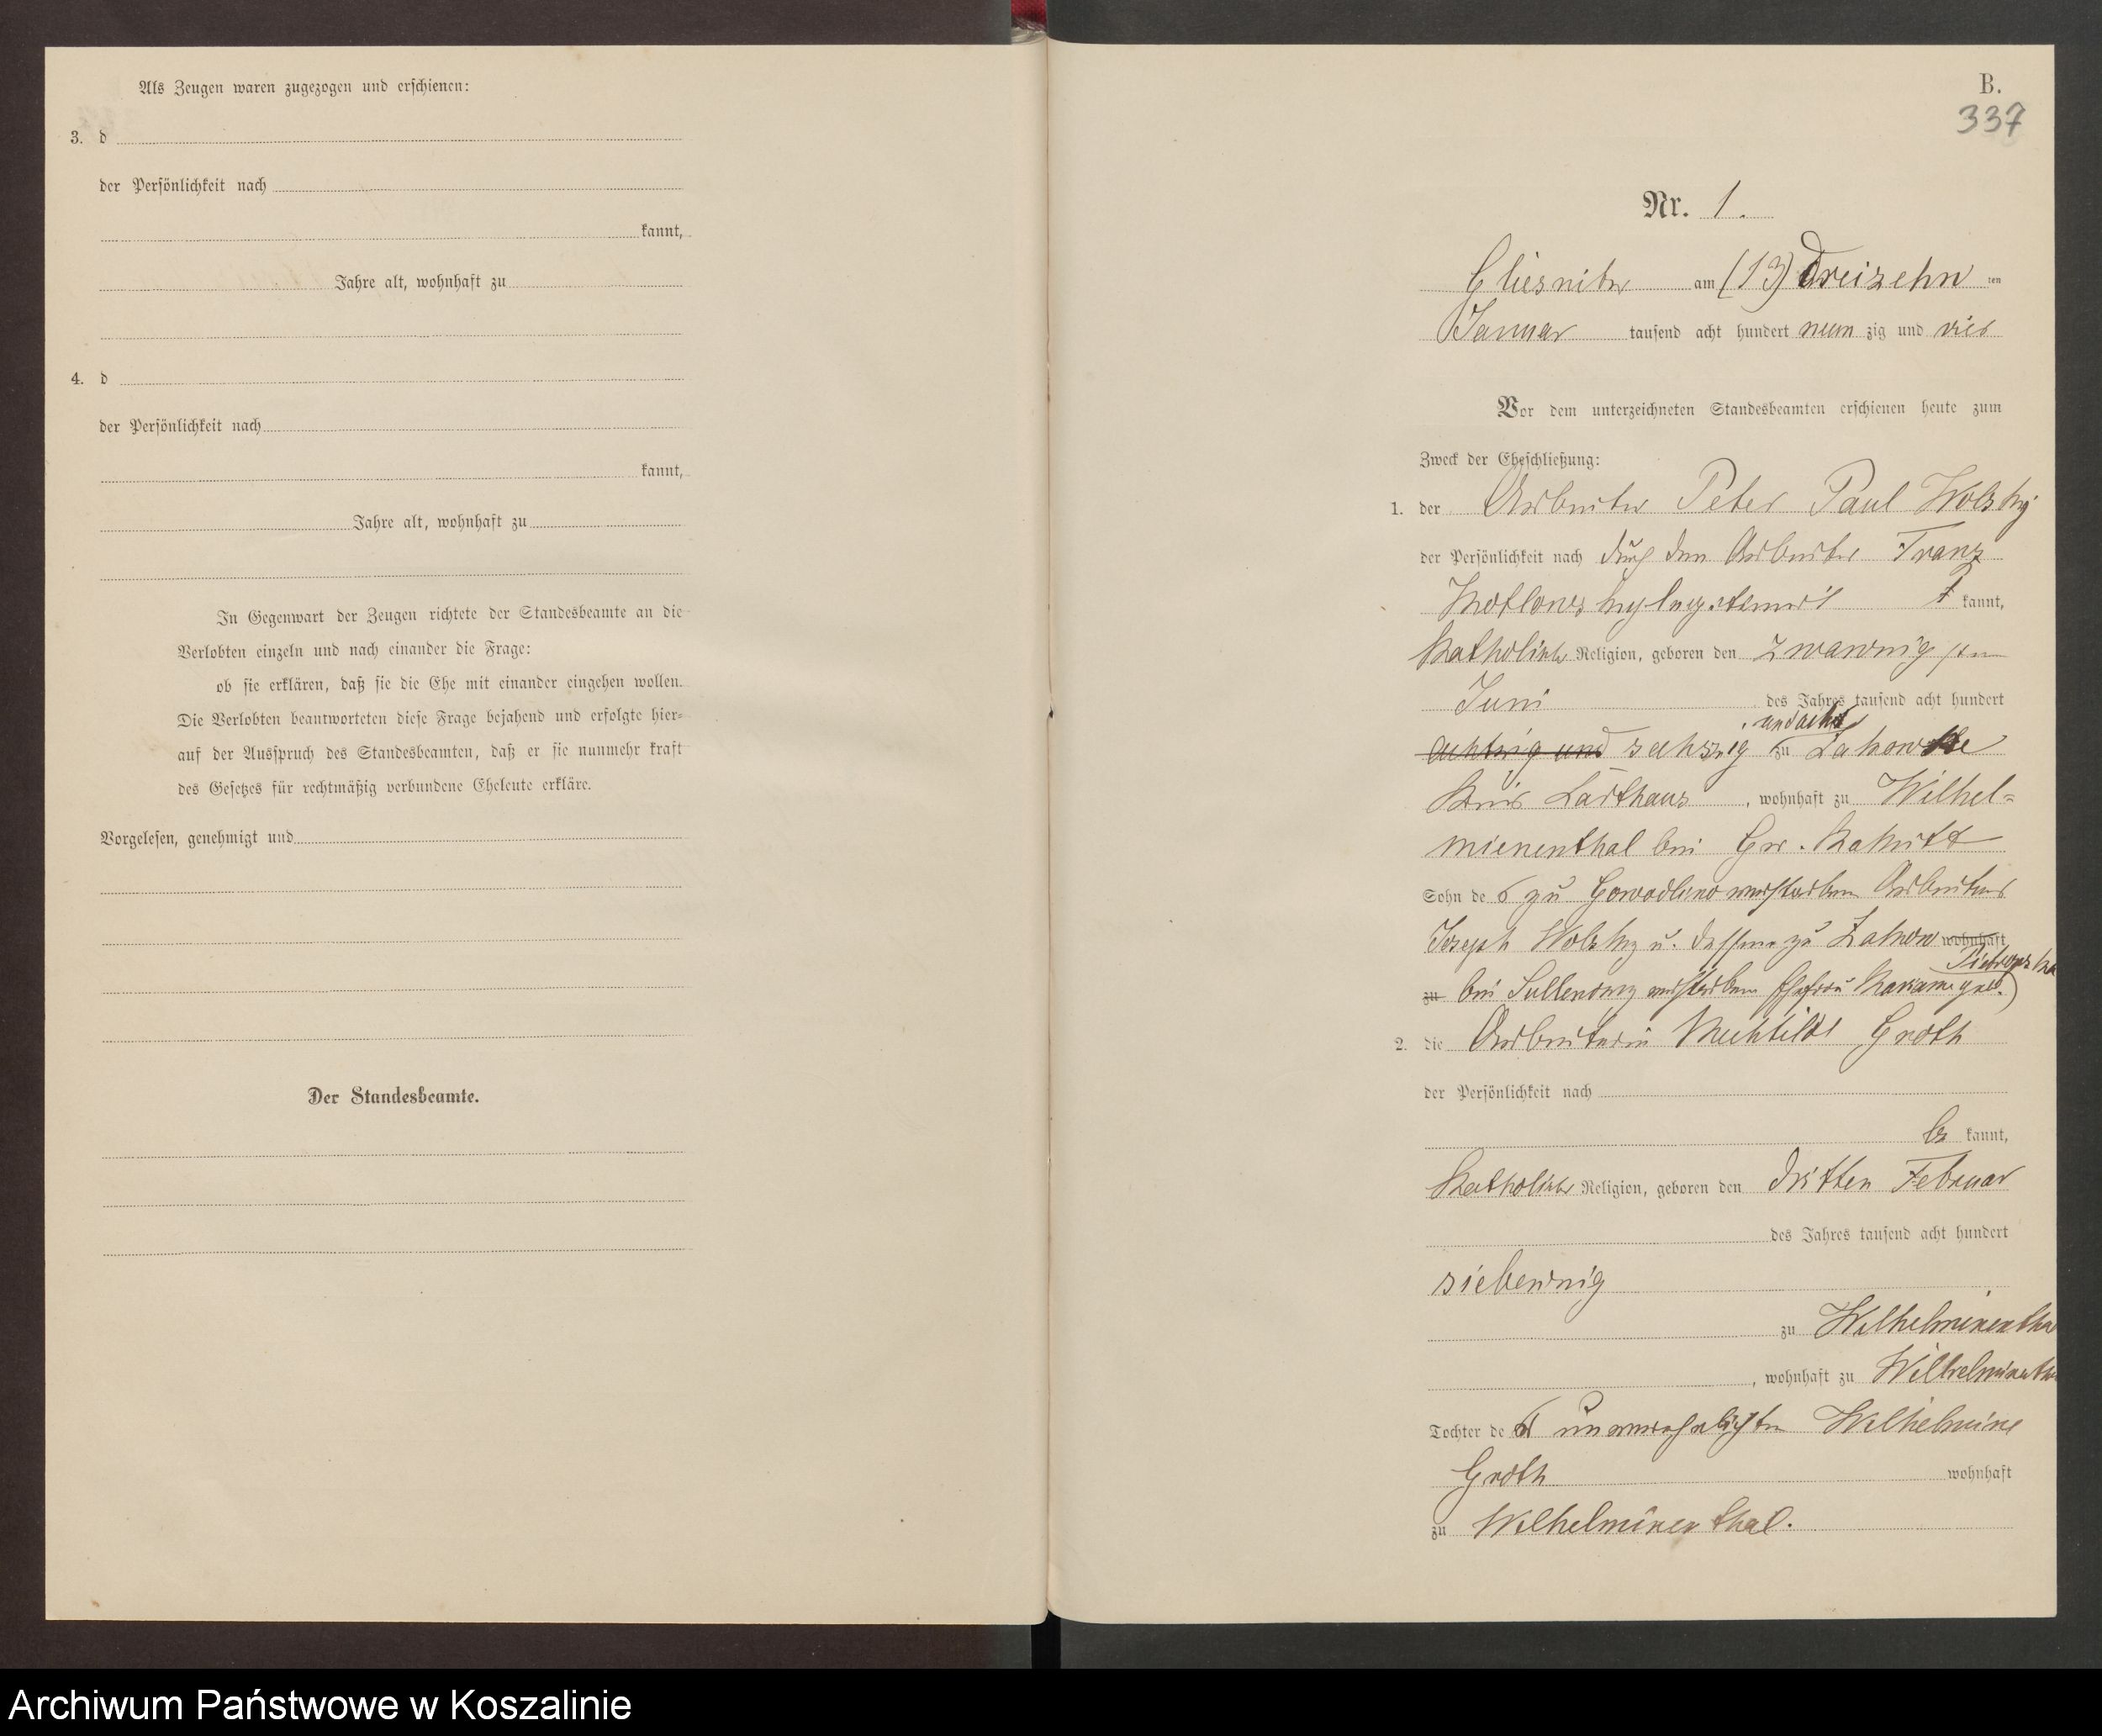 Als Zeugen waren zugezogen und erschienen:
3. d
der Persönlichkeit nach
kannt,
Jahre alt, wohnhaft zu
4. d
der Persönlichkeit nach
kannt,
Jahre alt, wohnhaft zu
In Gegenwart der Zeugen richtete der Standesbeamte an die
Verlobten einzeln und nach einander die Frage:
ob sie erklären, daß sie die Ehe mit einander eingehen wollen.
Die Verlobten beantworteten diese Frage bejahend und erfolgte hier-
auf der Ausspruch des Standesbeamten, daß er sie nunmehr kraft
des Gesetzes für rechtmäßig verbundene Eheleute erkläre.
Vorgelesen, genehmigt und
Der Standesbeamte.
B.
337
Nr. 1.
Gliesnitz am (13) dreizehn ten
Januar tausend acht hundert neun zig und vier
Vor dem unterzeichneten Standesbeamten erschienen heute zum
Zweck der Eheschließung:
1. der Arbeiter Peter Paul Wolsky
der Persönlichkeit nach durch den Arbeiter Franz
kannt,
katholischer Religion, geboren den zwanzigsten
Juni des Jahres tausend acht hundert
und acht
achtzig und sechszig zu
Kreis Carthaus, wohnhaft zu Wilhel-
mienenthal bei Gr.
Sohn des zu Gowidlino verstorbenen Arbeiters
Joseph Wolsky u. dessen zu wohnhaft
zu bei Sullenczyn verstorbenen Ehefrau geb.
2. die Arbeiterin Mechtilde Groth
der Persönlichkeit nach
be kannt,
katholischer Religion, geboren den dritten Februar
des Jahres tausend acht hundert
siebenzig
zu Wilhelminenthal
, wohnhaft zu Wilhelminenthal
Tochter der unverehelichten Wilhelmine
Groth wohnhaft
zu Wilhelminenthal.
Archiwum Państwowe w Koszalinie